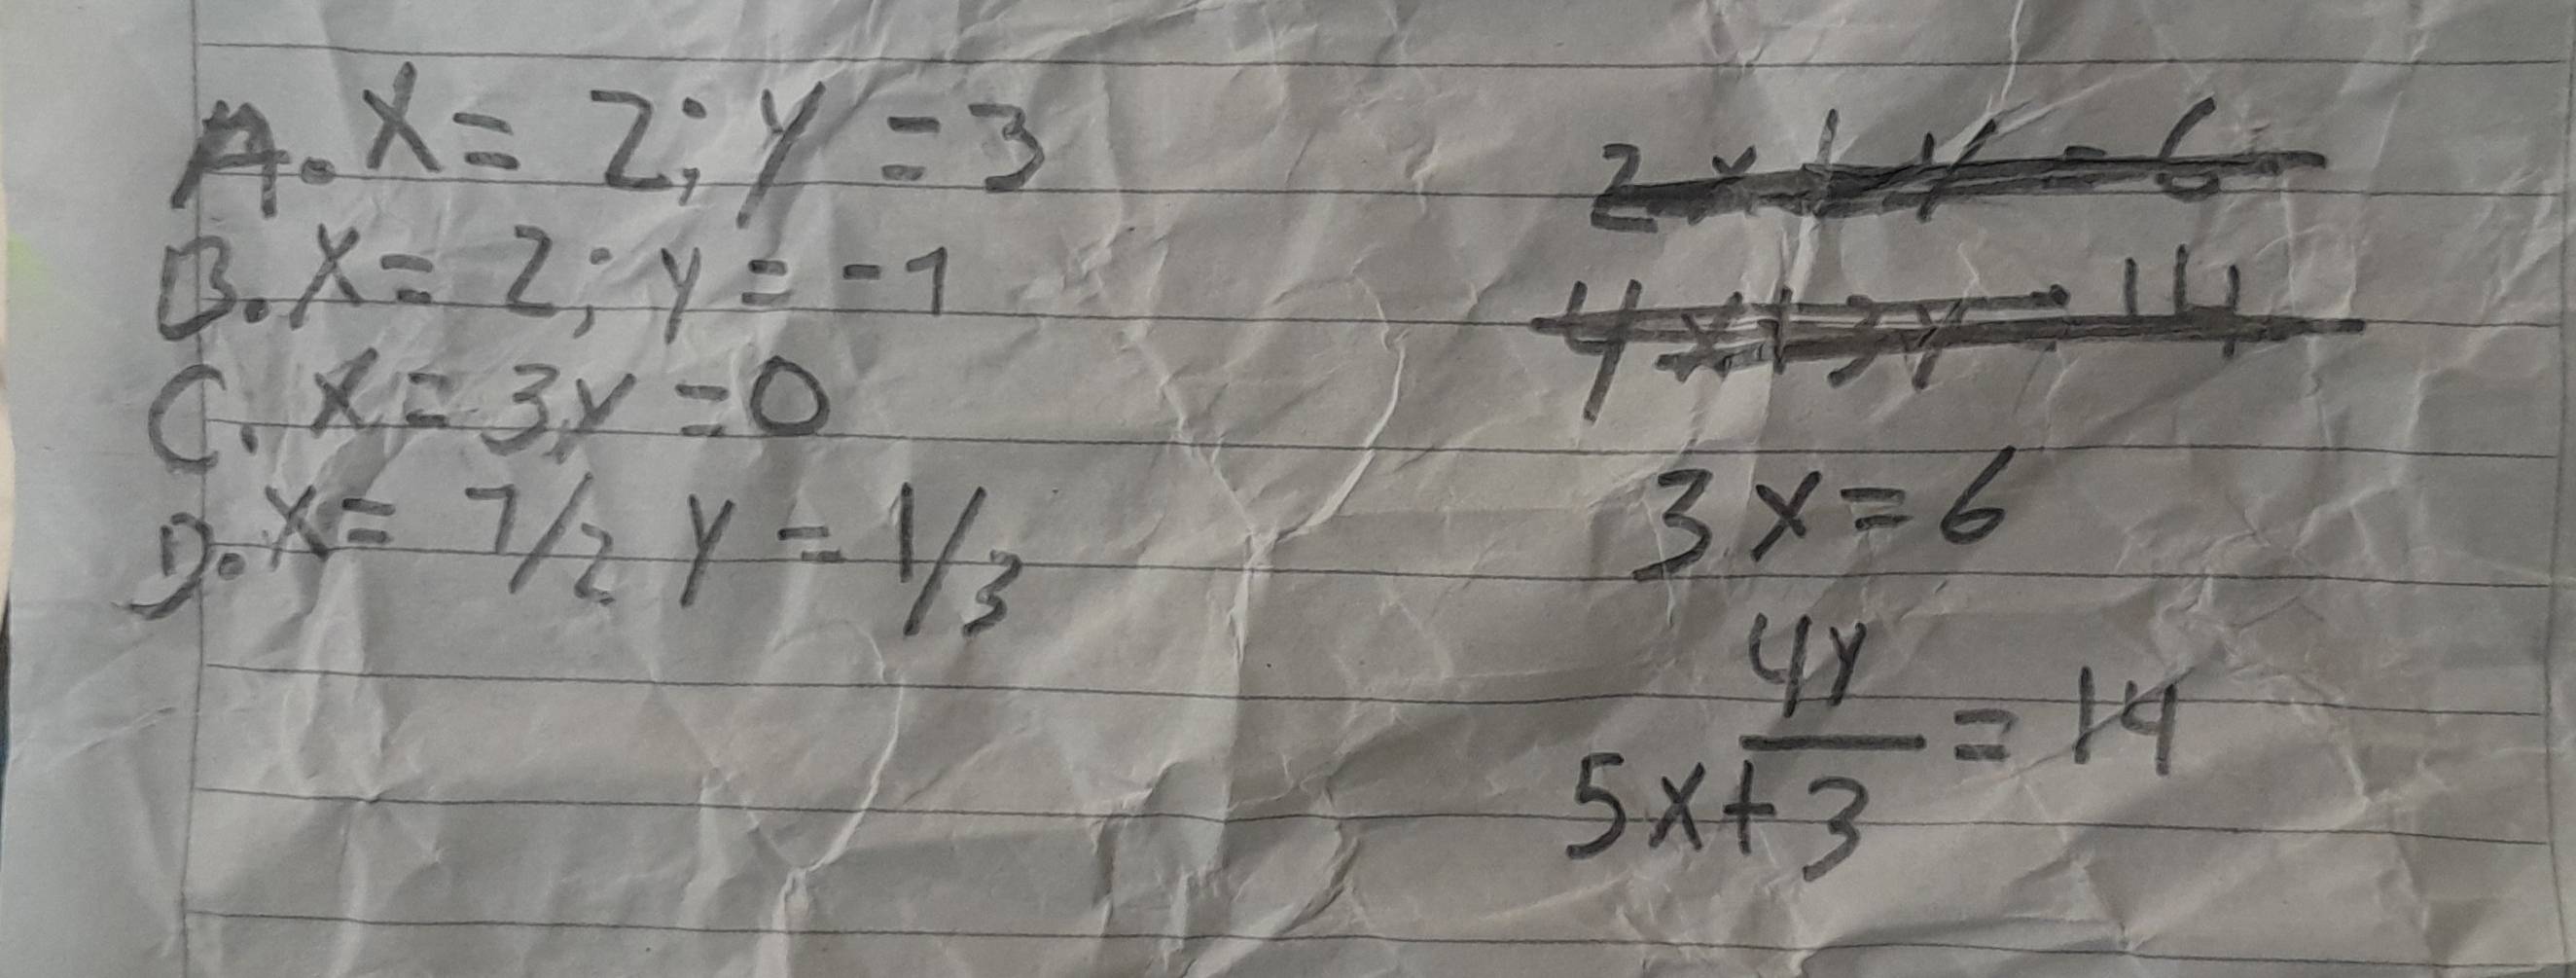 A. x = 2; y = 3
B. x = 2; y = -1
C. x = 3y = 0
D. x = 7/2 y = 1/3
2x+y = 6
4x+3y = 14
3x = 6
4y
5x+3 = 14